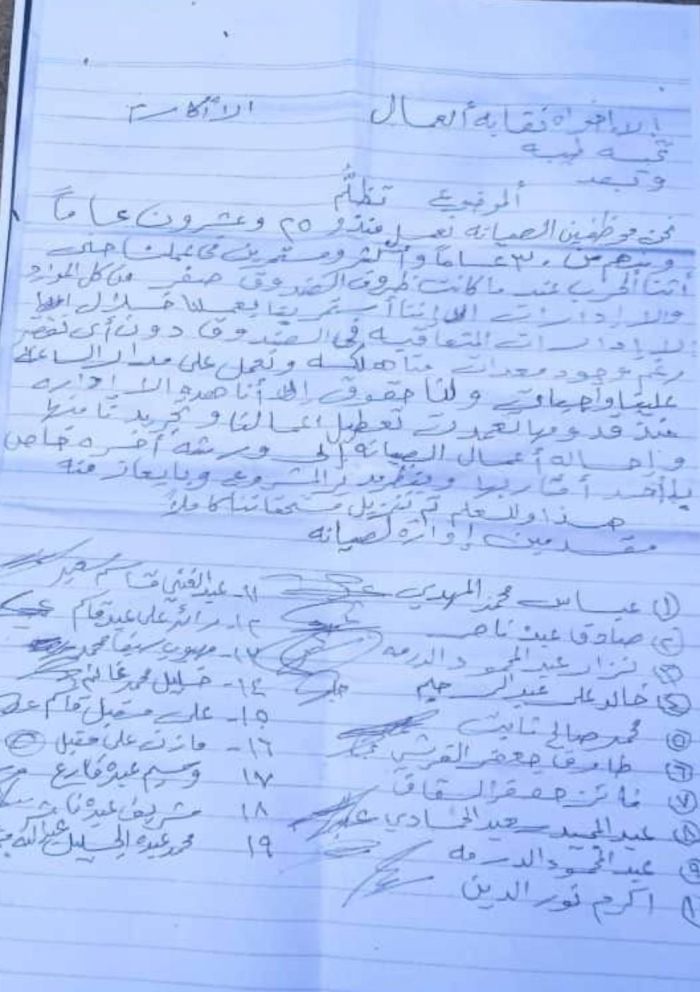 الاخوان نقابة العمال الاكارم
تحيه طيبه
وبعد
الموضوع تظلُّم
نحن موظفين الصيانه نعمل منذو ٢٥ وعشرون عاماً
ومنهم من ٣٠ عاماً وأكثر ومستمرين في عملنا حتى
اتتنا الحرب عندما كانت ظروف الصندوق صفر من كل الموارد
والايرادات الى اننا أستمرينا بعملنا خلال
الادارات المتعاقبه في الصندوق دون أي تقصير
رغم وجود معدات متاهلكه ونعمل على مدار الساعة
علينا واجبات ولنا حقوق إلى أنا هذه الاداره
منذ قدومها تعمدت تعطيل اعمالنا وتجريدنا منها
وإحاله أعمال الصيانه إلى ورشه أخره خاص
بأحد أقاربها ومدير المشروع وبايعاز منه
هذا وللعلم تم تنزيل مستحقاتنا كاملاً
مقدمين إدارة لصيانه
١ عباس محمد المهدي
٢ صادق عبده ناصر
٣ نزار عبدالمحمود الدرمه
٤ خالد علي عبدالرحيم
٥ محمد صالح ثابت
٦ طارق جعفر القرشي
٧ فائز جعفر السقاف
٨ عبدالحميد سعيد الحمادي
٩ عبدالمحمود الدرمه
١٠ اكرم نور الدين
١١- عبدالغني قاسم سعيد
١٢- رائد علي عبده قاسم
١٣- مهيوب سيف محمد
١٤- خليل محمد غانم
١٥- علي مقبل قاسم
١٦- مازن علي مقبل
١٧ وسيم عبده فارع
١٨ شريف عبده ناشر
١٩ محمد عبده الجليل عبدالله